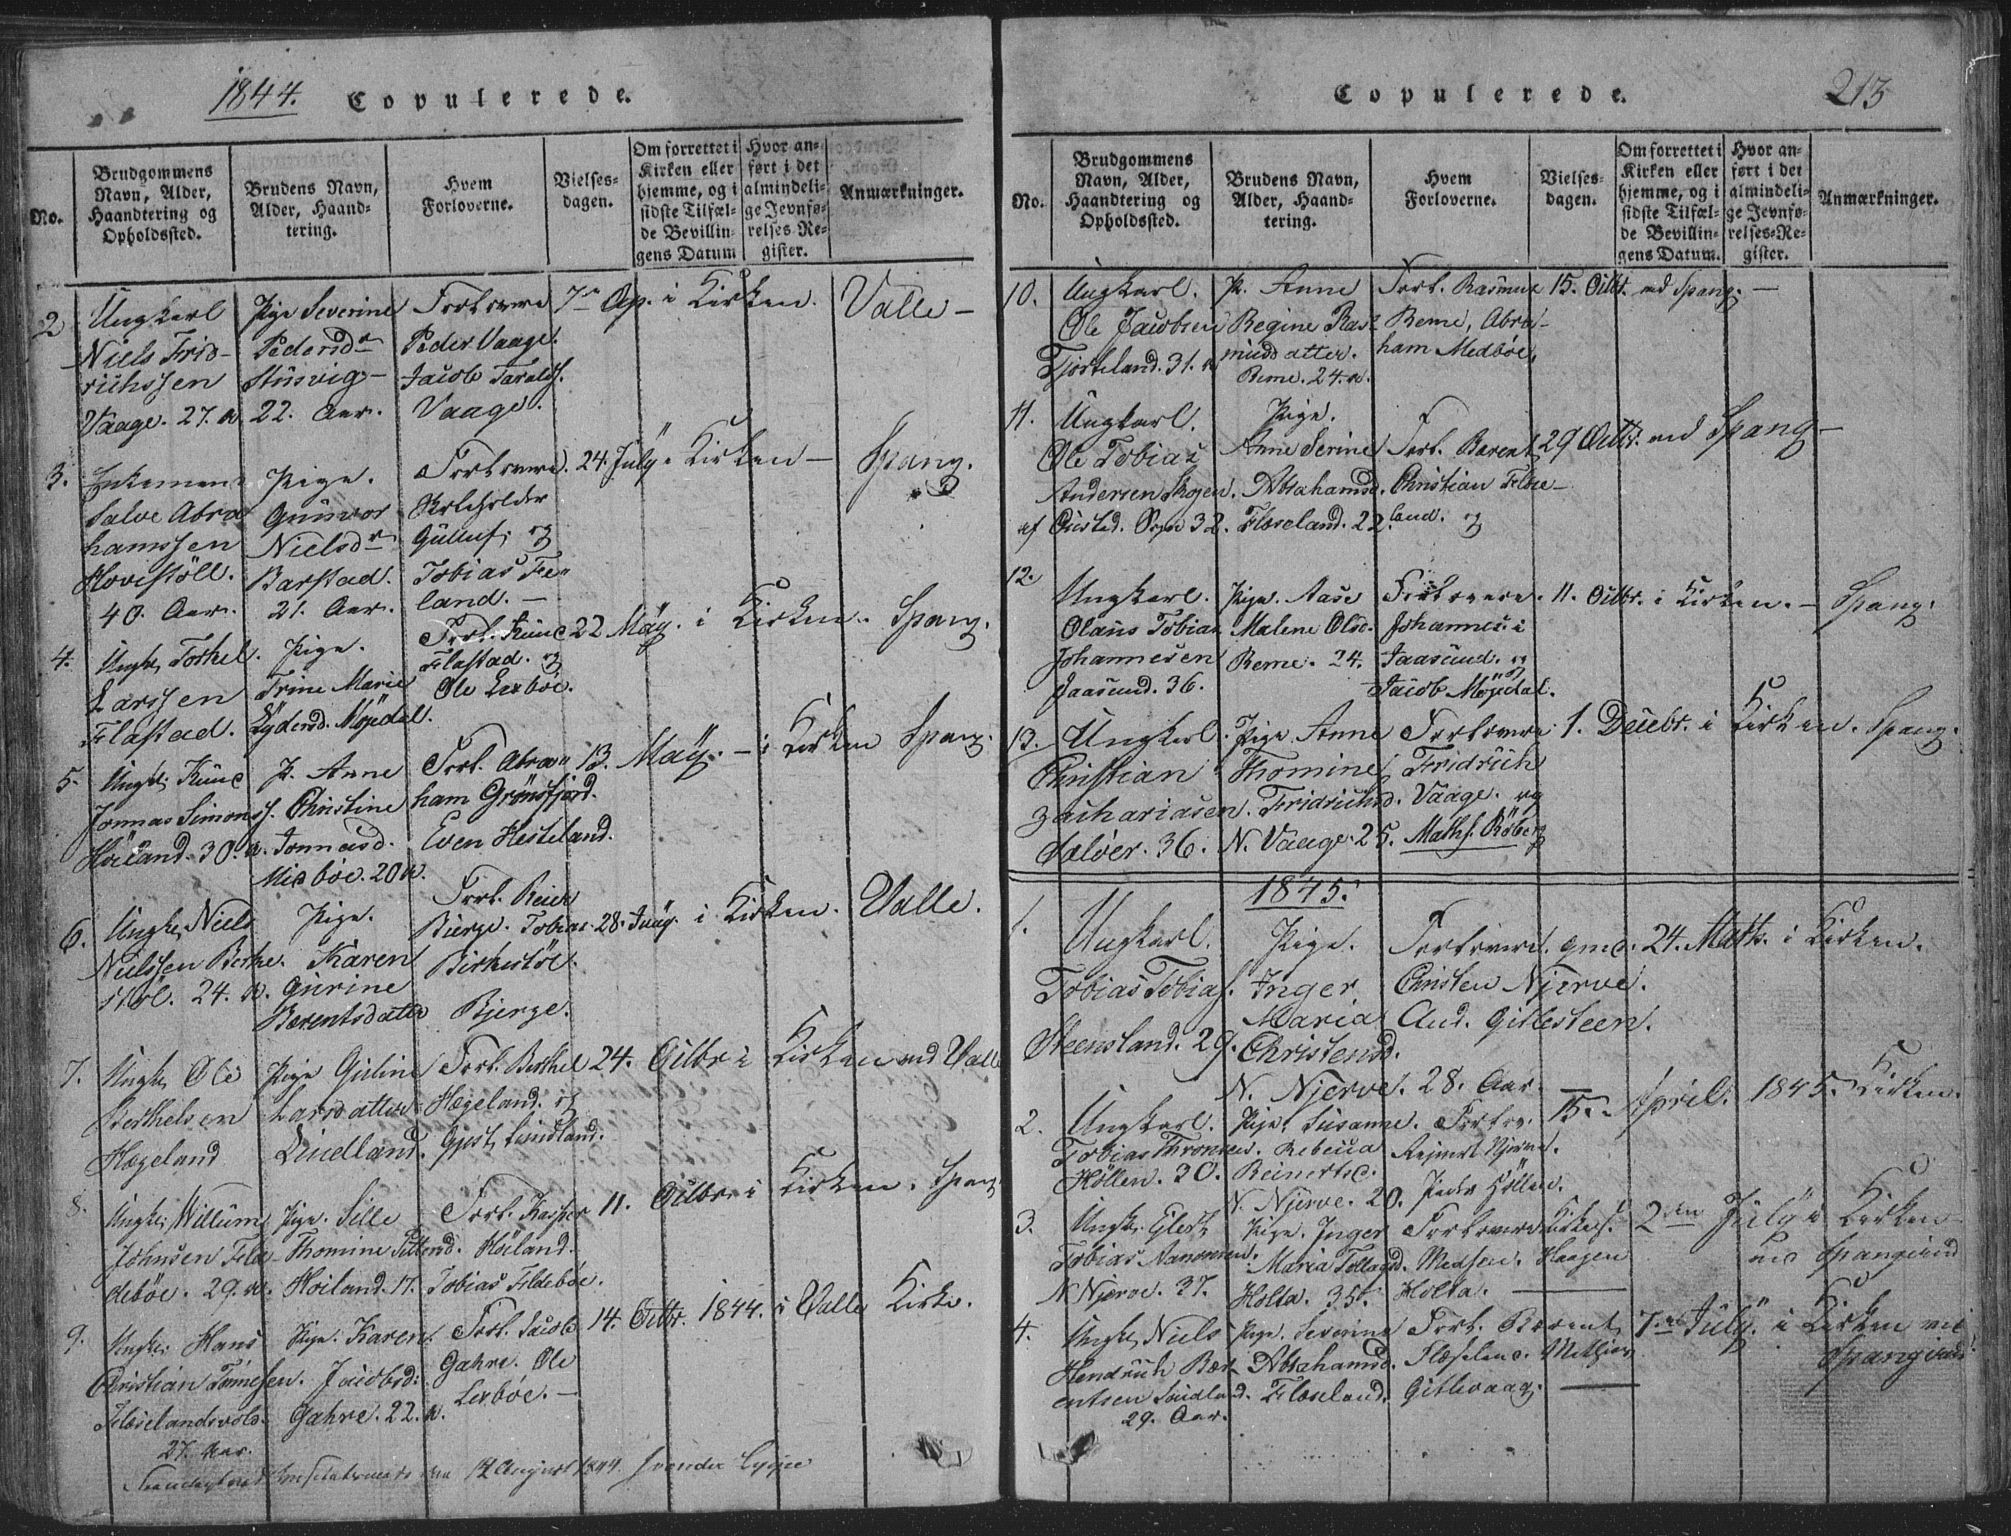 1844. Copulerede.
No.
Brudgommens Navn, Alder, Haandtering og Opholdssted.
Brudens Navn, Alder, Haandtering.
Hvem Forloverne.
Vielsesdagen.
Om forrettet i Kirken eller hjemme, og i sidste Tilfælde Bevillingens Datum
Hvor anført i det almindelige Jevnførelses Register.
Anmærkninger.
2 Ungkarl Niels Fridrichssen Vaage. 27. A.
Pige Severine Pedersdr Stusvig 22. Aar.
Forlovere Peder Vaage. Jacob Taralds. Vaage.
7de Ap. i Kirken.
Valle
3. Enkemand Salve Abrahamssen Hovestöll. 40. Aar.
Pige. Gunvor Nielsdr Barstad. 21. Aar.
Forlovere. Gulluf. og Tobias Feland.
24. July i Kirken
Spang.
4. Ungk. Torkel Larssen Flastad.
Pige. Trine Marie Lydersd. Möjedal.
Forl. Knud Flastad. og Ole Lexböe.
22 May. i Kirken.
Spang.
5. Ungk. Knud Jonnas Simons. Höiland. 30. A.
P. Anne Christine Jonnasd. Midböe. 20 A.
Forl. Abraham Grönsfjord. Even Hesteland.
13. May. i Kirken
Spang.
6. Ungk. Niels Nielssen Birke 24. A.
Pige. Karen Gurine Barentsdatter
Forl. Reier Bierge. Tobias Birkestöl. Bjerge.
28. Juny. i Kirken.
Valle.
7. Ungk. Ole Berthelsen Hægeland
Pige Guline Larsdatter Lindland.
Forl. Berthel Hægeland. og Gjest Lindland.
24. Octbr i Kirken ved Valle
8. Ungk. Willum Johnsen Fildeböe. 29. A.
Pige. Sille Thomine Höiland. 17.
Forl. Kasper Höiland. Tobias Fildeböe.
11. Octbr. i Kirken.
Spang
9. Ungk. Hans Christian Tönnesen. Flöselandsvold. 27. Aar.
Pige. Karen Jacobsd. Gahre. 22. A.
Forl. Jacob Gahre. Ole Lexböe.
14. Octbr. 1844. i Valle Kirke.
12 August 1844.
Copulerede. 213
No.
Brudgommens Navn, Alder, Haandtering og Opholdssted.
Brudens Navn, Alder, Haandtering.
Hvem Forloverne.
Vielsesdagen.
Om forrettet i Kirken eller hjemme, og i sidste Tilfælde Bevillingens Datum.
Hvor anført i det almindelige Jevnførelses-Register.
Anmærkninger.
10. Ungkarl. Ole Jacobsen Tjorteland. 31. A
P. Anne Regine Rasmusdatter. Reme. 24. A.
Forl. Rasmus Reme, Abraham Medböe.
15. Octbr. ved Spang.
11. Ungkarl. Ole Tobias Andersen Skojen. af Öiested. Sogn 32.
Pige. Anne Serine Abrahamsd. Flöseland. 22.
Forl. Barent Christian Flöseland. og
29 Octbr. ved Spang
12. Ungkarl. Olaus Tobias Johannesen Jaasund. 36.
Pige. Aase Malene Olsd. Reme. 24.
Forlovere. Johannes i Jaasund. og Jacob Möjedal.
11. Octbr. i Kirken.
Spang.
13. Ungkarl. Christian Zachariasen. Salöer. 36.
Pige Anne Thomine Fridrichsd. N. Vaage. 25.
Forlovere Fridrich Vaage. og Maths. Röberg
1. Decbr. i Kirken.
Spang.
1845.
1. Ungkarl. Tobias Tobias. Steensland. 29.
Pige. Inger Maria Christensd. N. Njerve. 28. Aar.
Forlovere. Christen Njerve. And. Gitlesteen.
24. Marts. i Kirken.
2. Ungkarl. Tobias Thronsen. Höllen. 30.
Pige. Susanne Rebecca Reinertsd. N. Njerve. 20.
Forlov. Reinert Njerve. Peder Höllen.
15. April. 1845. Kirken.
3. Ungk. Gjest Tobias Aanonsen. N Njerve. 37.
Pige. Inger Maria Tellagd. Holta. 35.
Forlovere Madsen. Haagen Holta.
2den July i Kirken ved Spangreid
4. Ungk. Niels Hendrich Barentsen Lindland. 29. Aar.
Pige. Severine Abrahamsd. Flöseland.
Forl. Barent Flöseland. Mathias Gitlevaag.
7de July. i Kirken ved Spangreid